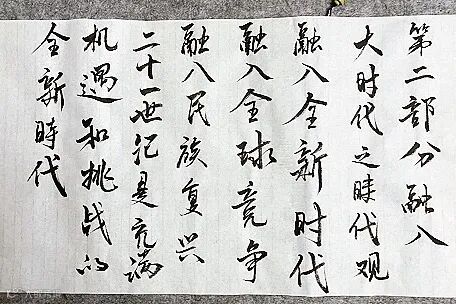 第二部分融入
大时代之时代观
融入全新时代
融入全球竞争
融入民族复兴
二十一世纪是充满
机遇和挑战的
全新時代